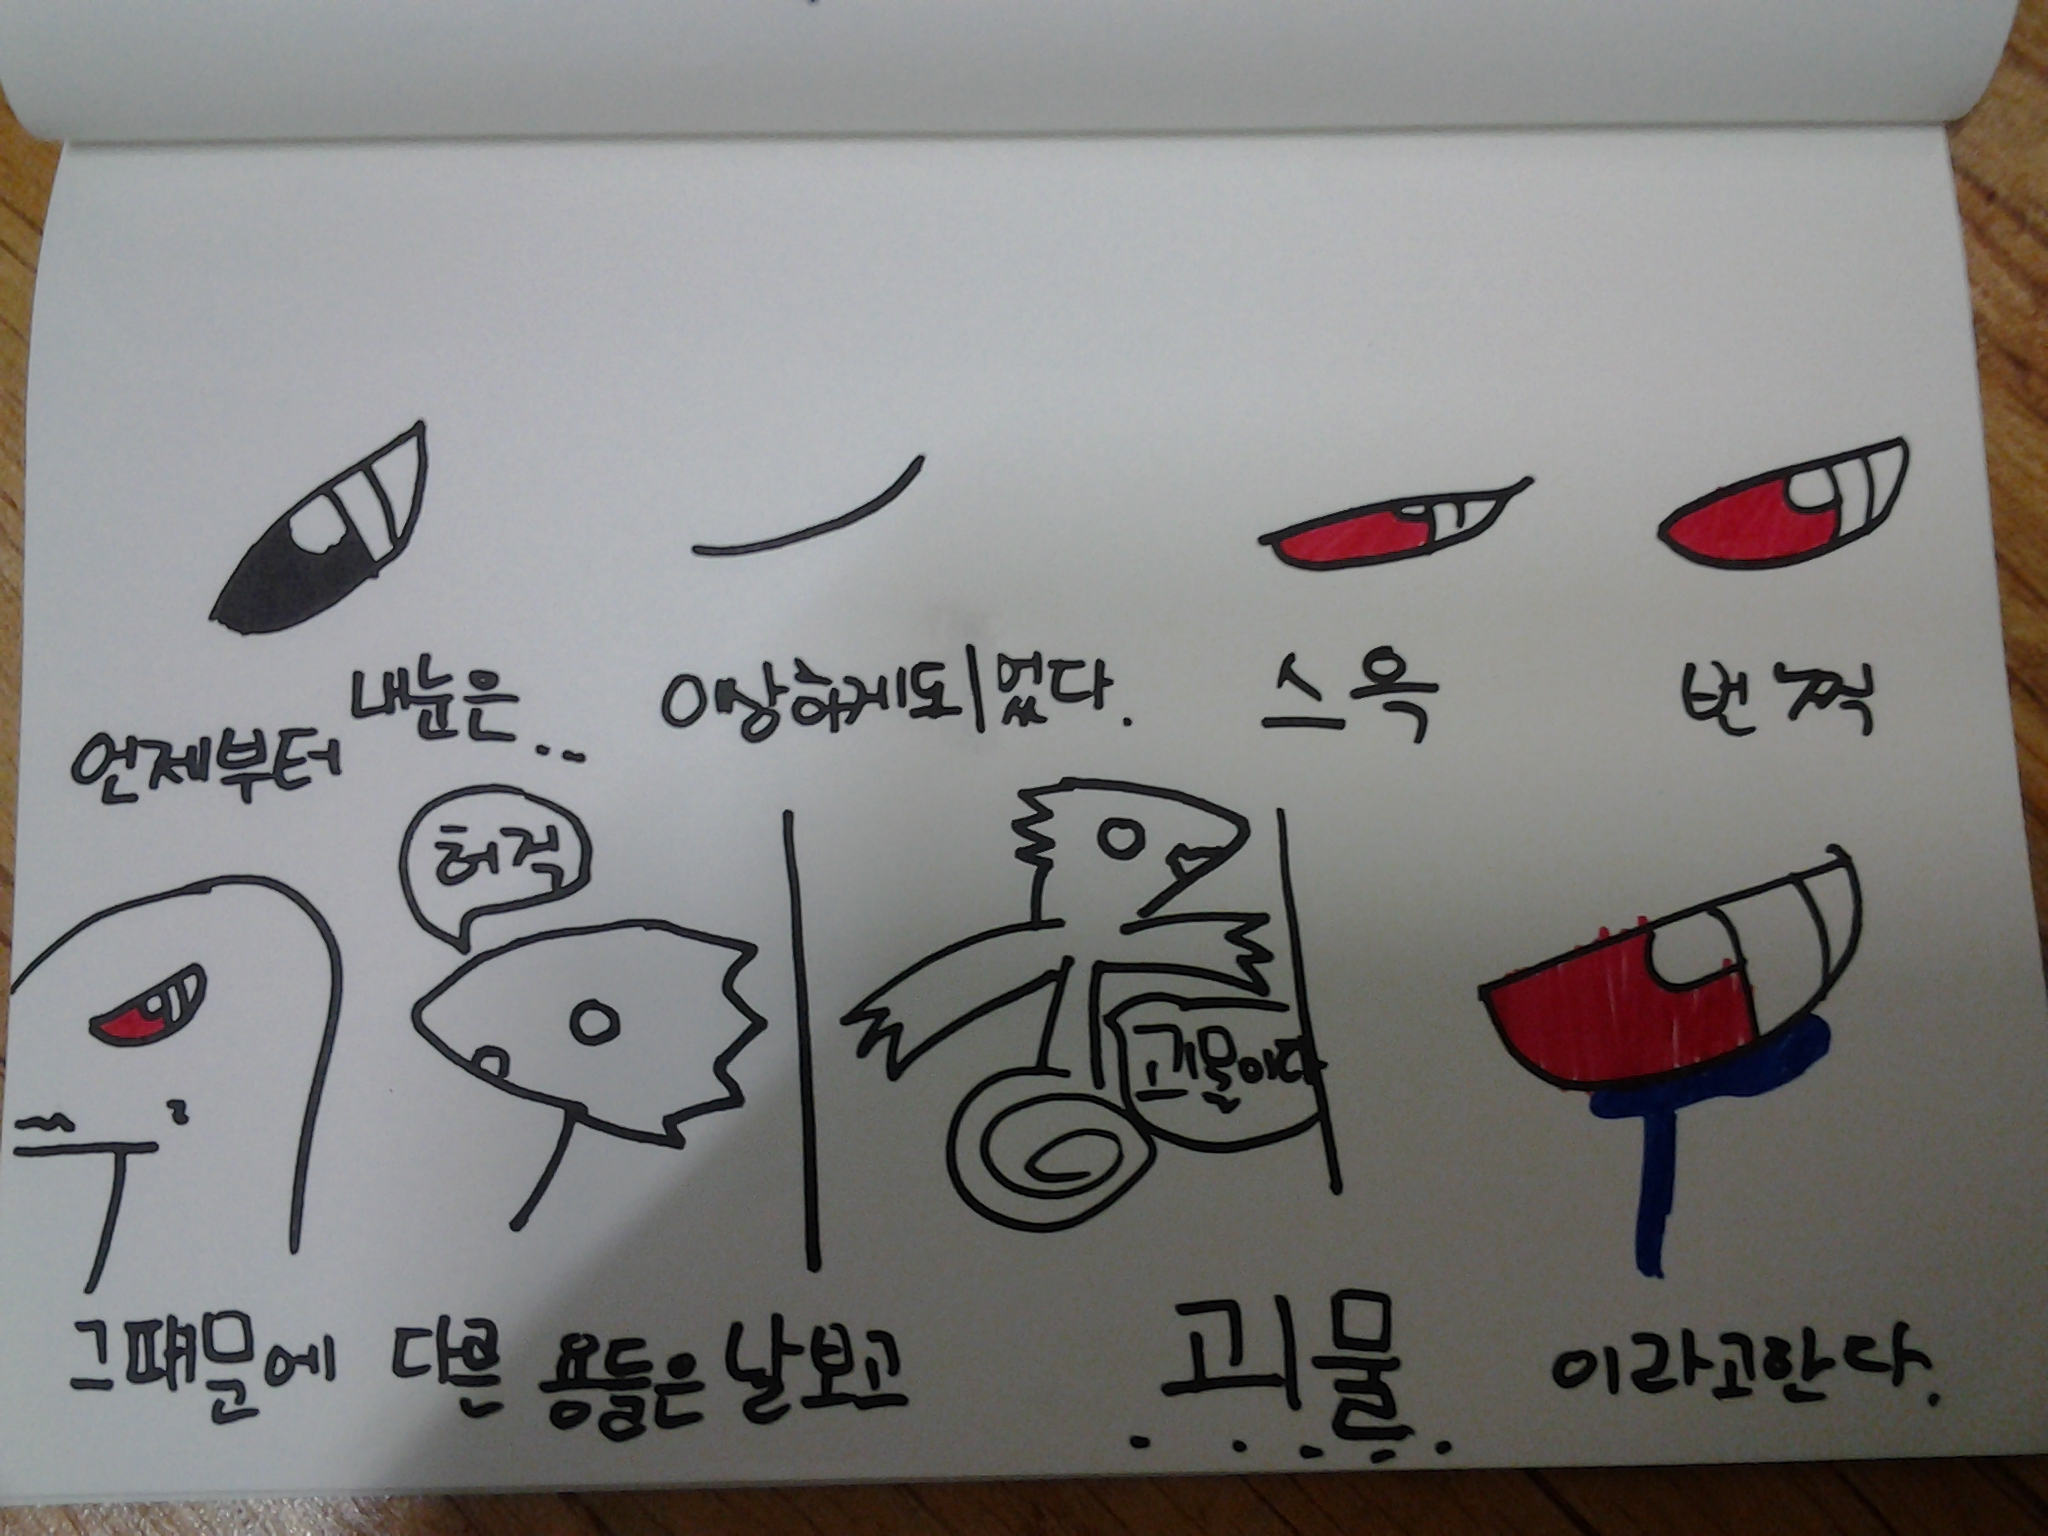 언제부터 내눈은...
이상하게되었다.
스윽
번쩍
허걱
괴물이다
그떄문에 다른 용들은 날보고
괴물
이라고한다.